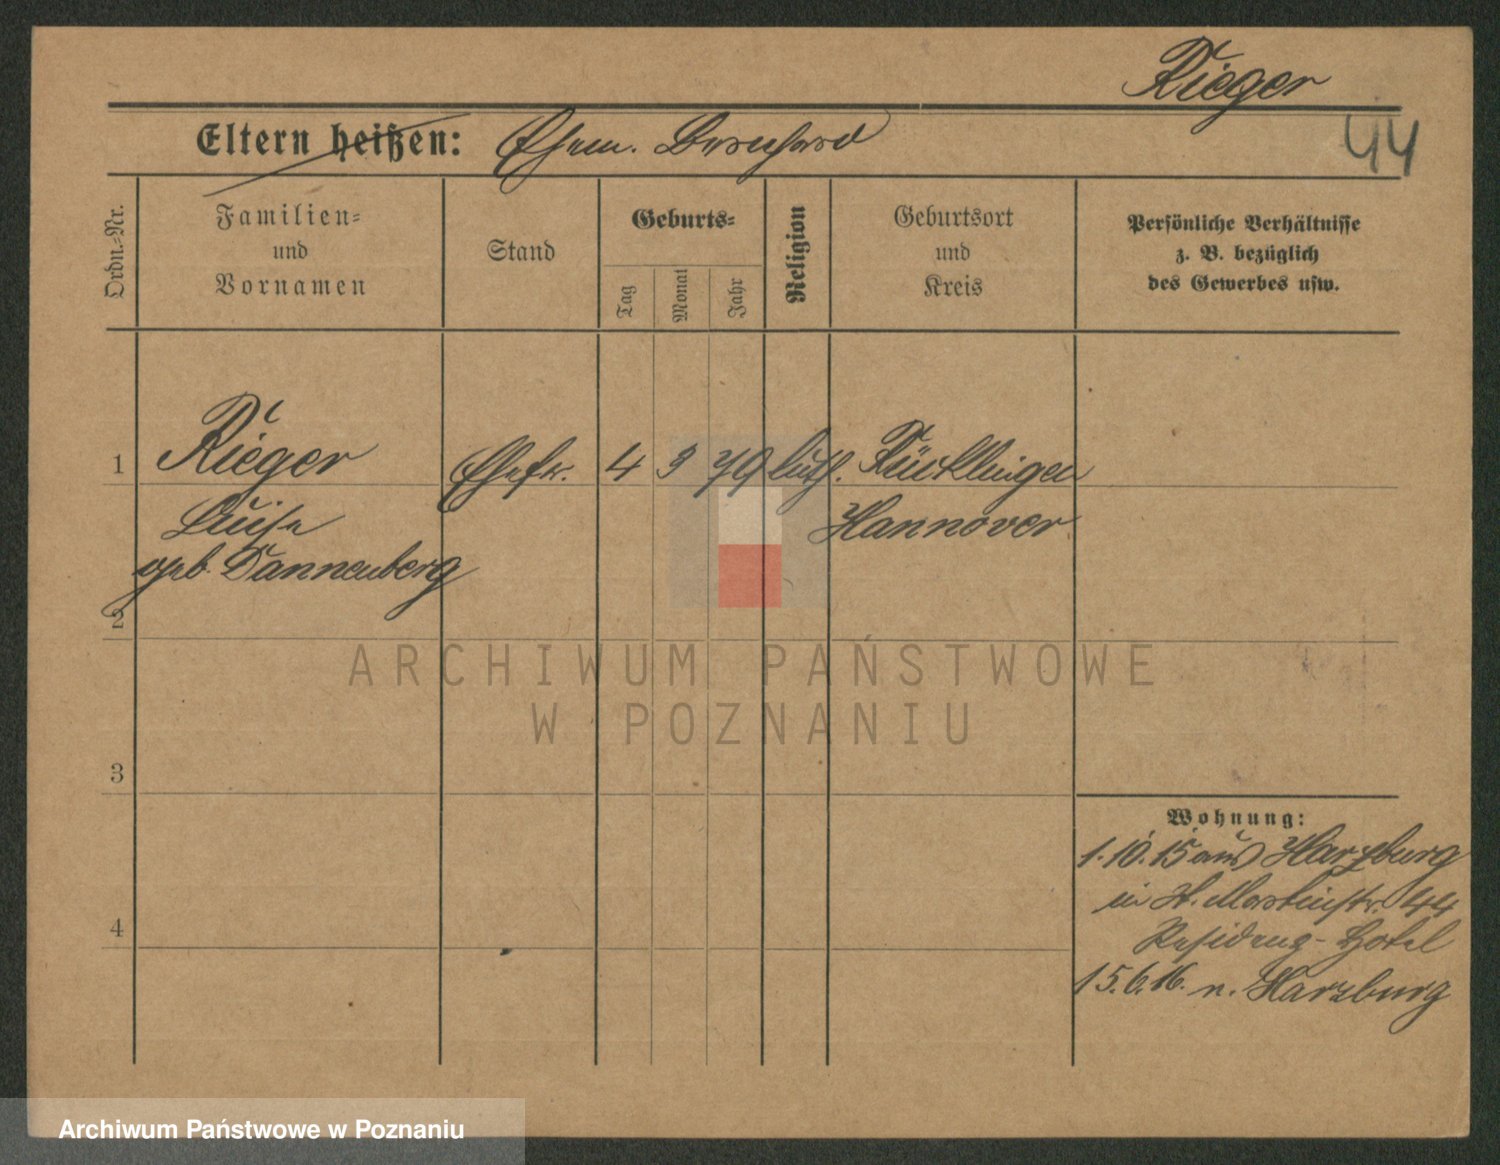 Rieger
44
Eltern heißen: Ehem. Bernhard
Ordn.-Nr.
Familien-
und
Vornamen
Stand
Geburts-
Tag
Monat
Jahr
Religion
Geburtsort
und
Kreis
Persönliche Verhältnisse
z. B. bezüglich
des Gewerbes usw.
1 Rieger Ehefr. 4 3 79 luth.
Luise Hannover
geb. Dannenberg
2
3
4
Wohnung:
1.10.15 aus Harzburg
in St. Martinstr. 44
Residenz-Hotel
15.6.16. n. Harzburg
ARCHIWUM PAŃSTWOWE
W POZNANIU
Archiwum Państwowe w Poznaniu